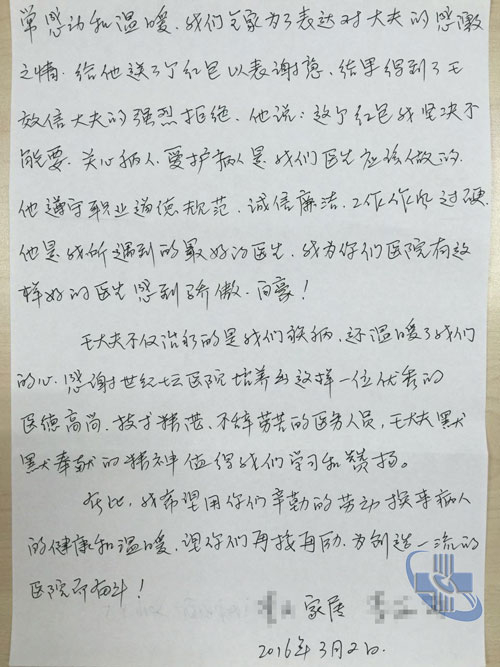 常感动和温暖。我们全家为了表达对大夫的感激
之情。给他送了个红包以表谢意，结果得到了王
效信大夫的强烈拒绝。他说：这个红包我坚决不
能要。关心病人、爱护病人是我们医生应该做的。
他遵守职业道德规范、诚信廉洁、工作作风过硬。
他是我所遇到的最好的医生，我为你们医院有这
样好的医生感到骄傲、自豪！
王大夫不仅治的是我们疾病，还温暖了我们
的心。感谢世纪坛医院培养出这样一位优秀的
医德高尚、技术精湛、不辞劳苦的医务人员，王大夫默
默奉献的精神值得我们学习和赞扬。
在此，我希望用你们辛勤的劳动换来病人
的健康和温暖，望你们再接再励，为创造一流的
医院而奋斗！
家属
2016年3月2日.